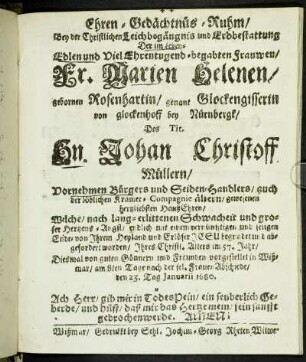 Ehren-Gedächtnüs-Ruhm/
Bey der Christlichen Leichbegängnis und Erdbestattung
Der im leben
Edlen und Viel Ehrentugend-begabten Frauwen/
Fr. Marien Helenen/
gebornen Rosenhartin/ genant Glockengisserin
von glockenhoff bey Nürnbergk/
Des Tit.
Hn. Johan Christoff
Müllern/
Vornehmen Bürgers und Seiden-Handlers/ auch
der löblichen Kramer-Compagnie ältern/ gewesenen
hertzliebsten HaußEhren/
Wilche/ nach lang-erlittenen Schwacheit und gros-
ser Hertzens-Angst/ endlich mit einem vernünftigen und seeligen
Ende/ von Ihrem Heyland und Erlöser JESU
abgefordert worden/ Ihres Christl. Alters im 57. Jahr/
Diesmal von guten Gönnern und Freunden vorgestellet in Wiß-
mar/ am 8ten Tage nach der sel. Frauen Abschiede/
den 23. Tag Januarii 1680.
Ach Herr/ gib mir in TodesPein/ ein seuberlich Ge-
berde/ und hilff/ daß mir das Hertze mein/ fein sanfft
gebrochen werde. AMEN!
Wißmar/ Gedruckt bey Sehl. Jochim-Georg Rheten Witwe